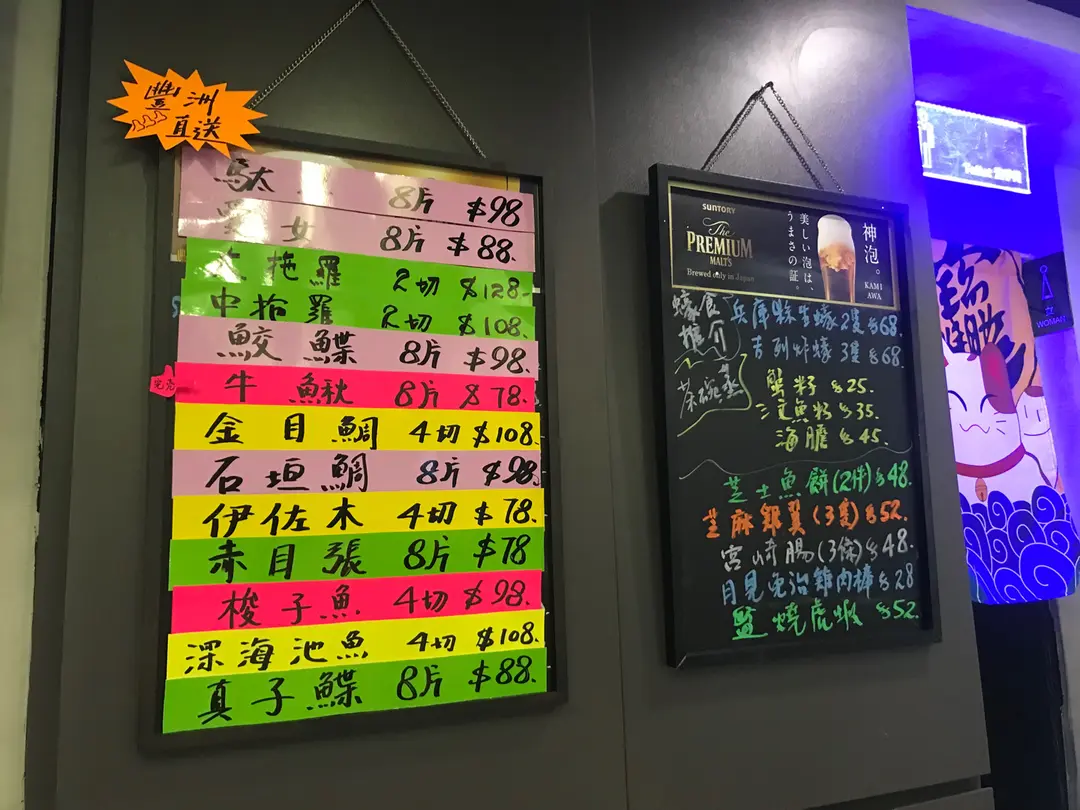 豐洲
直送
馱 8片 $98
女 8片 $88.
拖羅 2切 $128.
中拖羅 2切 $108.
鮫鰈 8片 $98.
牛鰍 8片 $78.
金目鯛 4切 $108.
石垣鯛 8片 $98.
伊佐木 4切 $78.
赤目張 8片 $78
梭子魚 4切 $98.
深海池魚 4切 $108.
真子鰈 8片 $88.
SUNTORY
The
PREMIUM
MALT'S
Brewed only in Japan
美しい泡は、
うまさの証。
神泡。
KAMI
AWA
蠔食
推介
兵庫縣生蠔2隻 $68.
吉列炸蠔 3隻 $68
茶碗蒸
蟹籽 $25.
三文魚籽 $35.
海膽 $45.
芝士魚餅(2件) $48.
芝麻雞翼(3隻) $52.
宮崎腸(3條) $48.
月見免治雞肉棒 $28
鹽燒虎蝦 $52.
Toilet
女
WOMAN